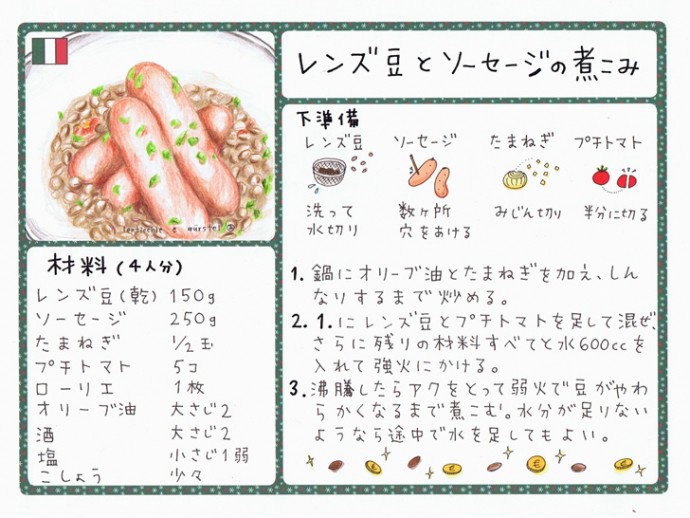 レンズ豆とソーセージの煮こみ
下準備
レンズ豆 ソーセージ たまねぎ プチトマト
洗って 数ヶ所 みじん切り 半分に切る
水切り 穴をあける
lenticchie e würstel
材料(4人分)
レンズ豆(乾) 150g
ソーセージ 250g
たまねぎ 1/2玉
プチトマト 5コ
ローリエ 1枚
オリーブ油 大さじ2
酒 大さじ2
塩 小さじ1弱
こしょう 少々
1. 鍋にオリーブ油とたまねぎを加え、しん
なりするまで炒める。
2. 1.にレンズ豆とプチトマトを足して混ぜ、
さらに残りの材料すべてと水600ccを
入れて強火にかける。
3. 沸騰したらアクをとって弱火で豆がやわ
らかくなるまで煮こむ。水分が足りない
ようなら途中で水を足してもよい。